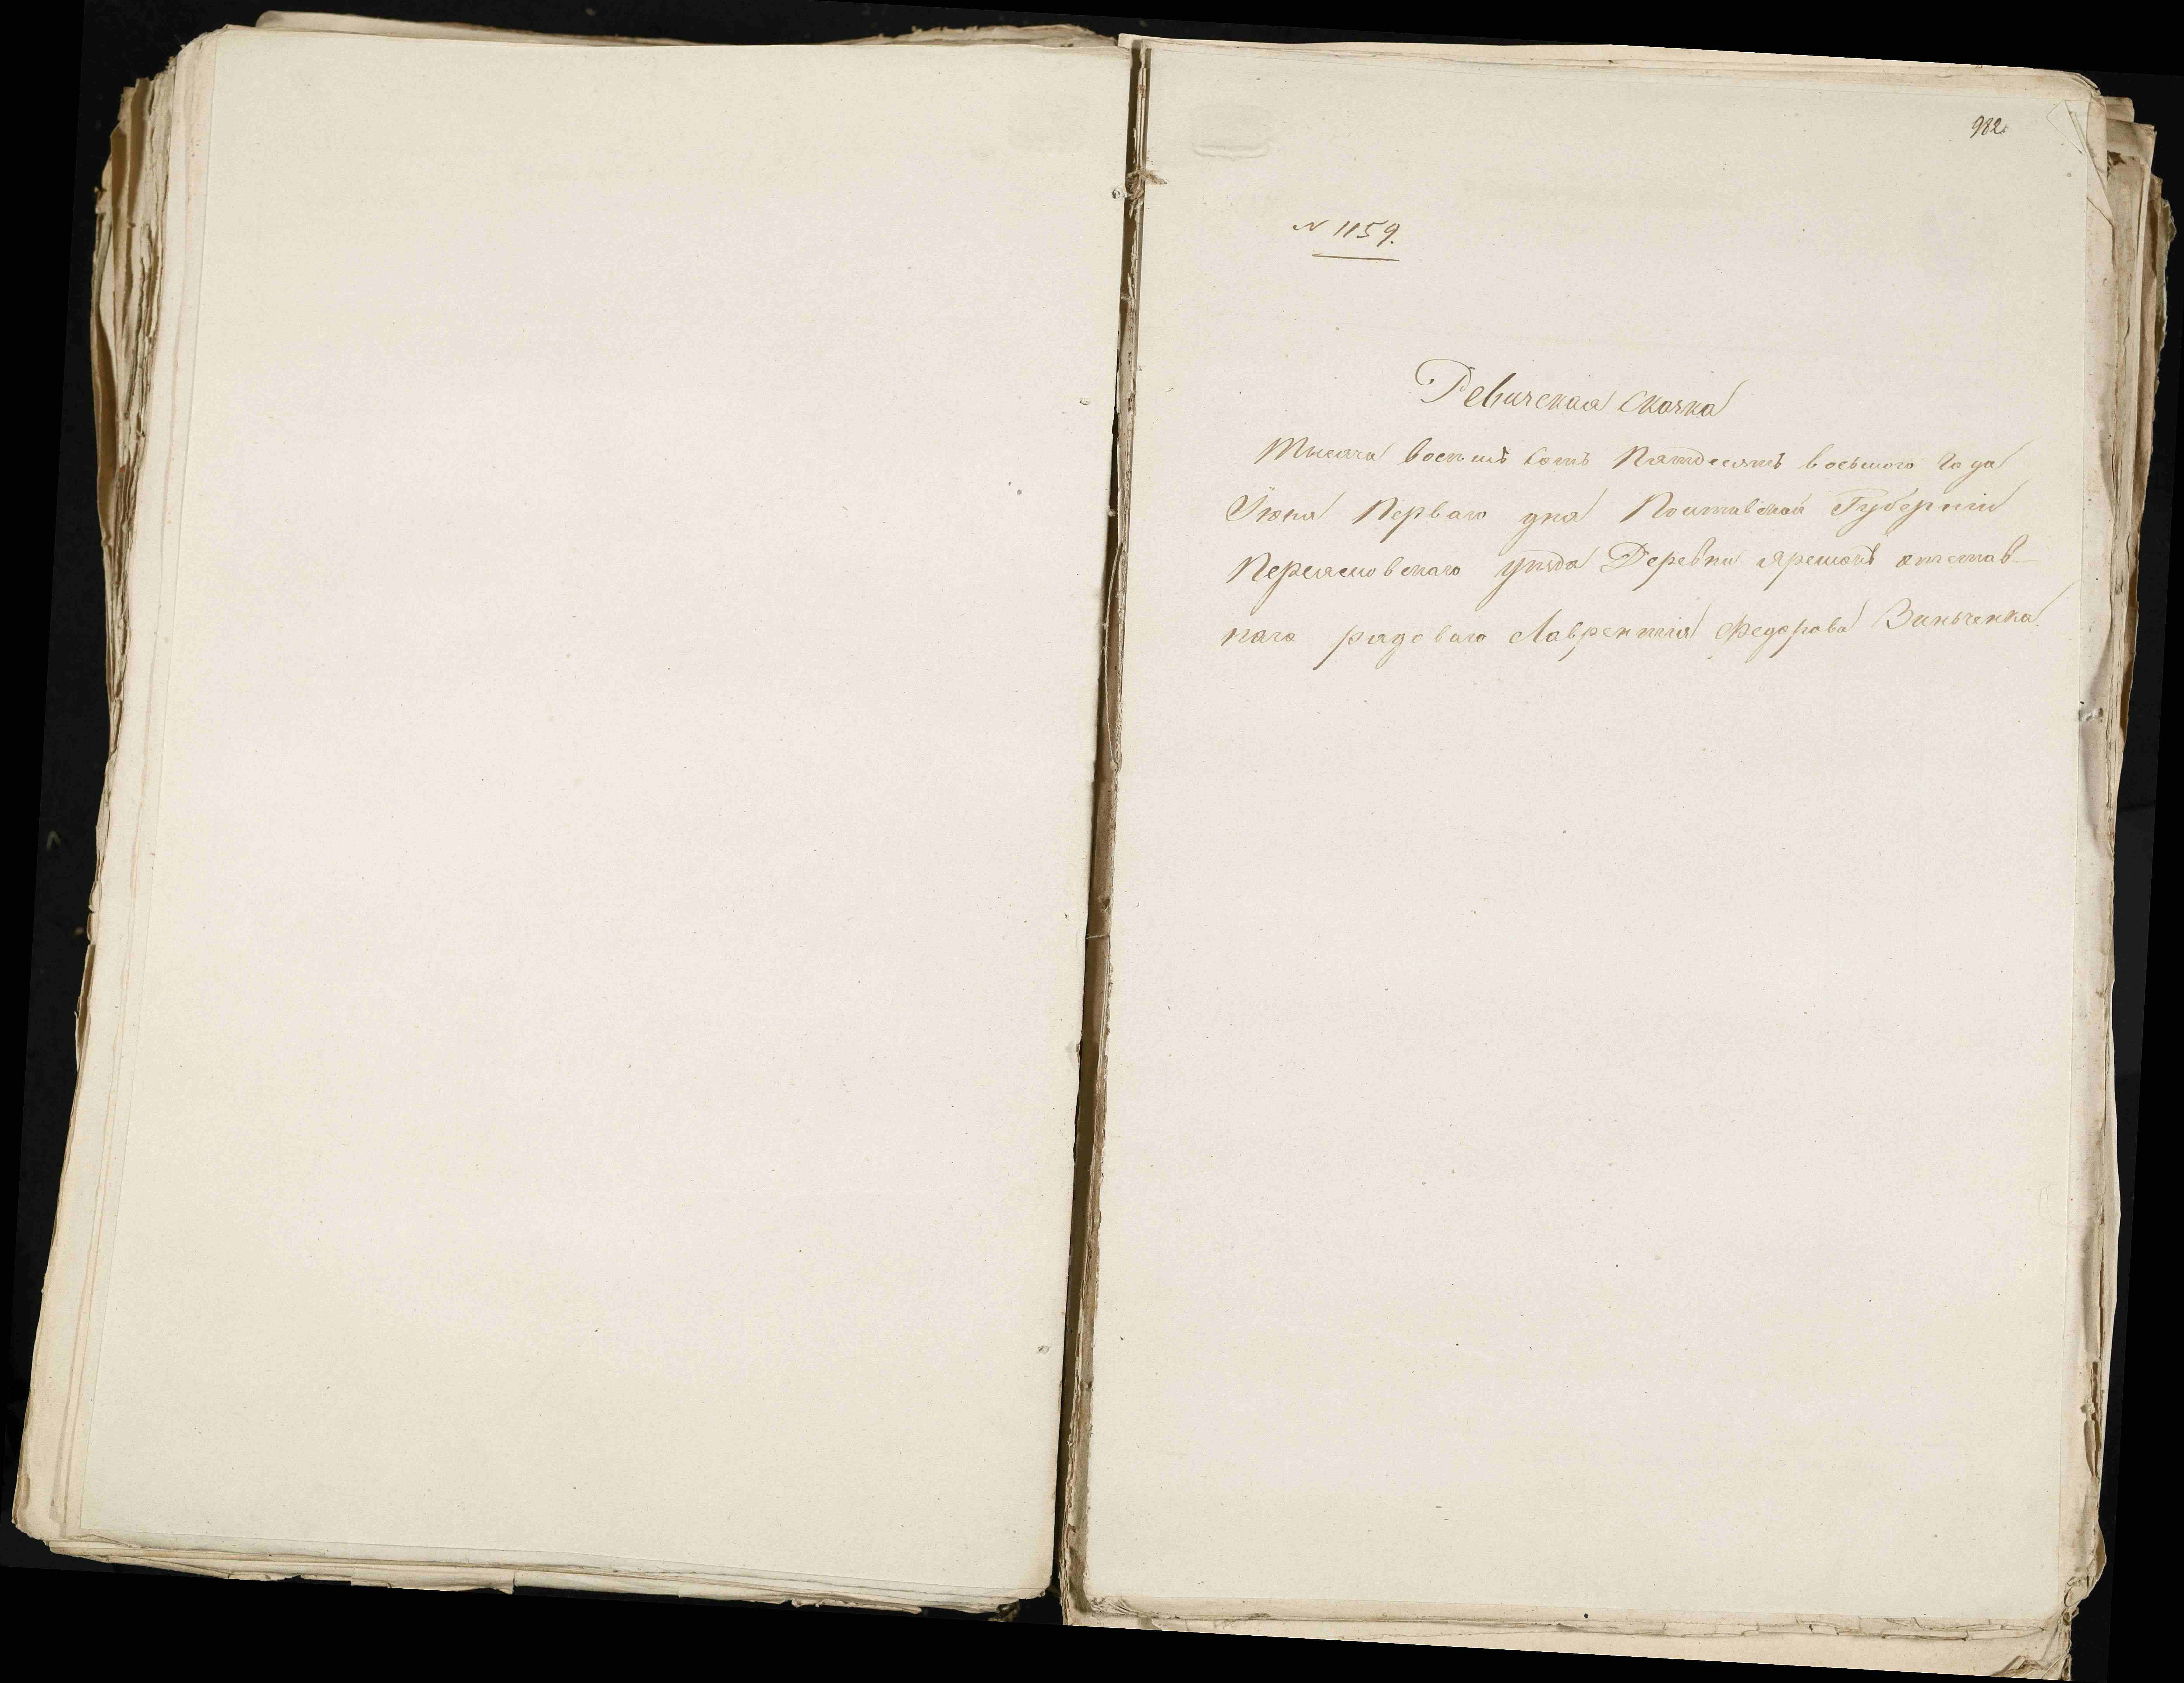 982.
N 1159.
Ревизская сказка
Тысяча восемь сотъ Пятдесятъ восьмого года
Іюня Перваго дня Полтавской Губерніи
Переяславскаго уезда Деревни Ярешокъ отстав-
наго рядоваго Лаврентія Федорова Зинченка.